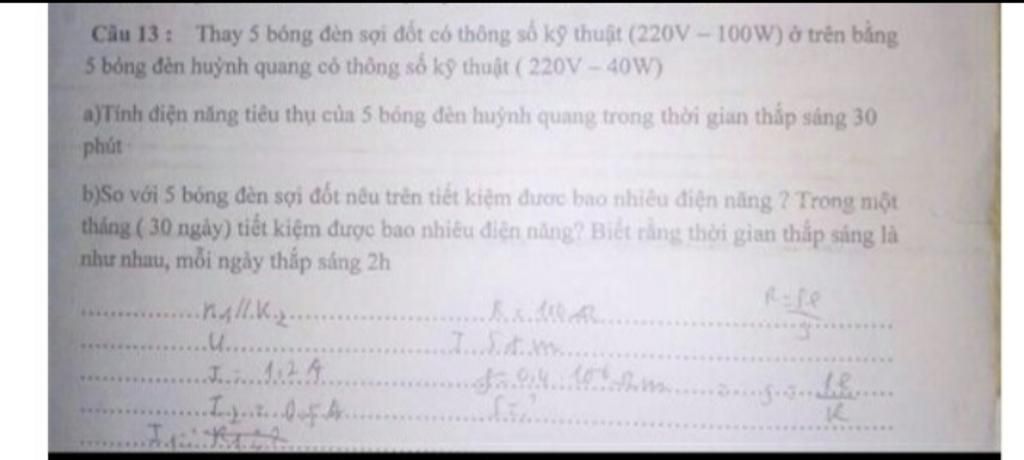 Câu 13 : Thay 5 bóng đèn sợi đốt có thông số kỹ thuật (220V – 100W) ở trên bằng
5 bóng đèn huỳnh quang có thông số kỹ thuật ( 220V – 40W)
a)Tính điện năng tiêu thụ của 5 bóng đèn huỳnh quang trong thời gian thắp sáng 30
phút
b)So với 5 bóng đèn sợi đốt nêu trên tiết kiệm đươc bao nhiêu điện năng ? Trong một
tháng ( 30 ngày) tiết kiệm được bao nhiêu điện năng? Biết rằng thời gian thắp sáng là
như nhau, mỗi ngày thắp sáng 2h
U
I = 1,2 A
I2 = 0,5A